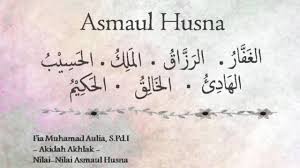 Asmaul Husna
الغَفَّارُ • الرَزَّاقُ • المَلِكُ • الحَسِيْبُ
الهَادِئُ • الخَالِقُ • الحَكِيْمُ
Fia Muhamad Aulia, S.Pd.I
- Akidah Akhlak -
Nilai-Nilai Asmaul Husna